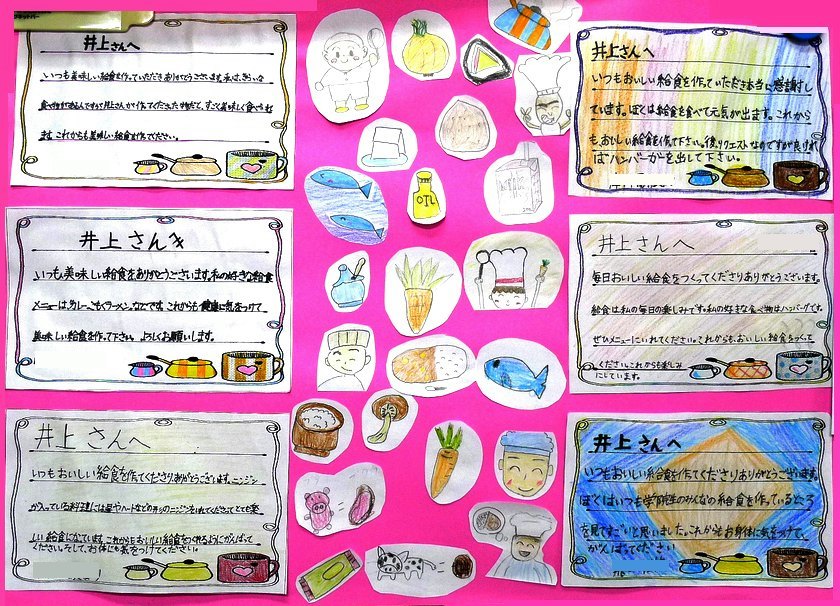 井上さんへ
いつも美味しい給食を作っていただきありがとうございます。私は、きらいな
食べ物がありますが井上さんが作ってくださった
すごく美味しく食べられ
ます。これからも美味しい給食を作ってください。
井上さんへ
いつも美味しい給食をありがとうございます。私の好きな給食
メニューは、カレーこもくラーメンなどです。これからも健康に気をつけて
美味しい給食を作って下さい。よろしくお願いします。
井上さんへ
いつもおいしい給食を作てくださりありがとうございます。ニンジン
が入っている料理には星やハートなどの形のニンジンをいれてくださってとても楽
しい給食になています。これからもおいしい給食をつくれるようにがんばって
ください。そして、お体にも気をつけてください。
OIL
井上さんへ
いつもおいしい給食を作っていただき本当に感謝し
ています。ぼくは給食を食べて元気が出ます。これから
も、おいしい給食を作て下さい。後、リクエストなのですが良けれ
ばハンバーガーを出して下さい。
井上さんへ
毎日おいしい給食をつくってくださりありがとうございます。
給食は私の毎日の楽しみです。私の好きな食べ物はハンバーグです。
ぜひメニューにいれてください。これからも、おいしい給食をつくて
ください。これからも楽しみ
にしています。
井上さんへ
いつもおいしい給食を作ってくださりありがとうございます。
ぼくはいつも学前先生のみんなの給食を作っているところ
を見てすごいと思いました。これからもお身体に気をつけて、
がんばってください